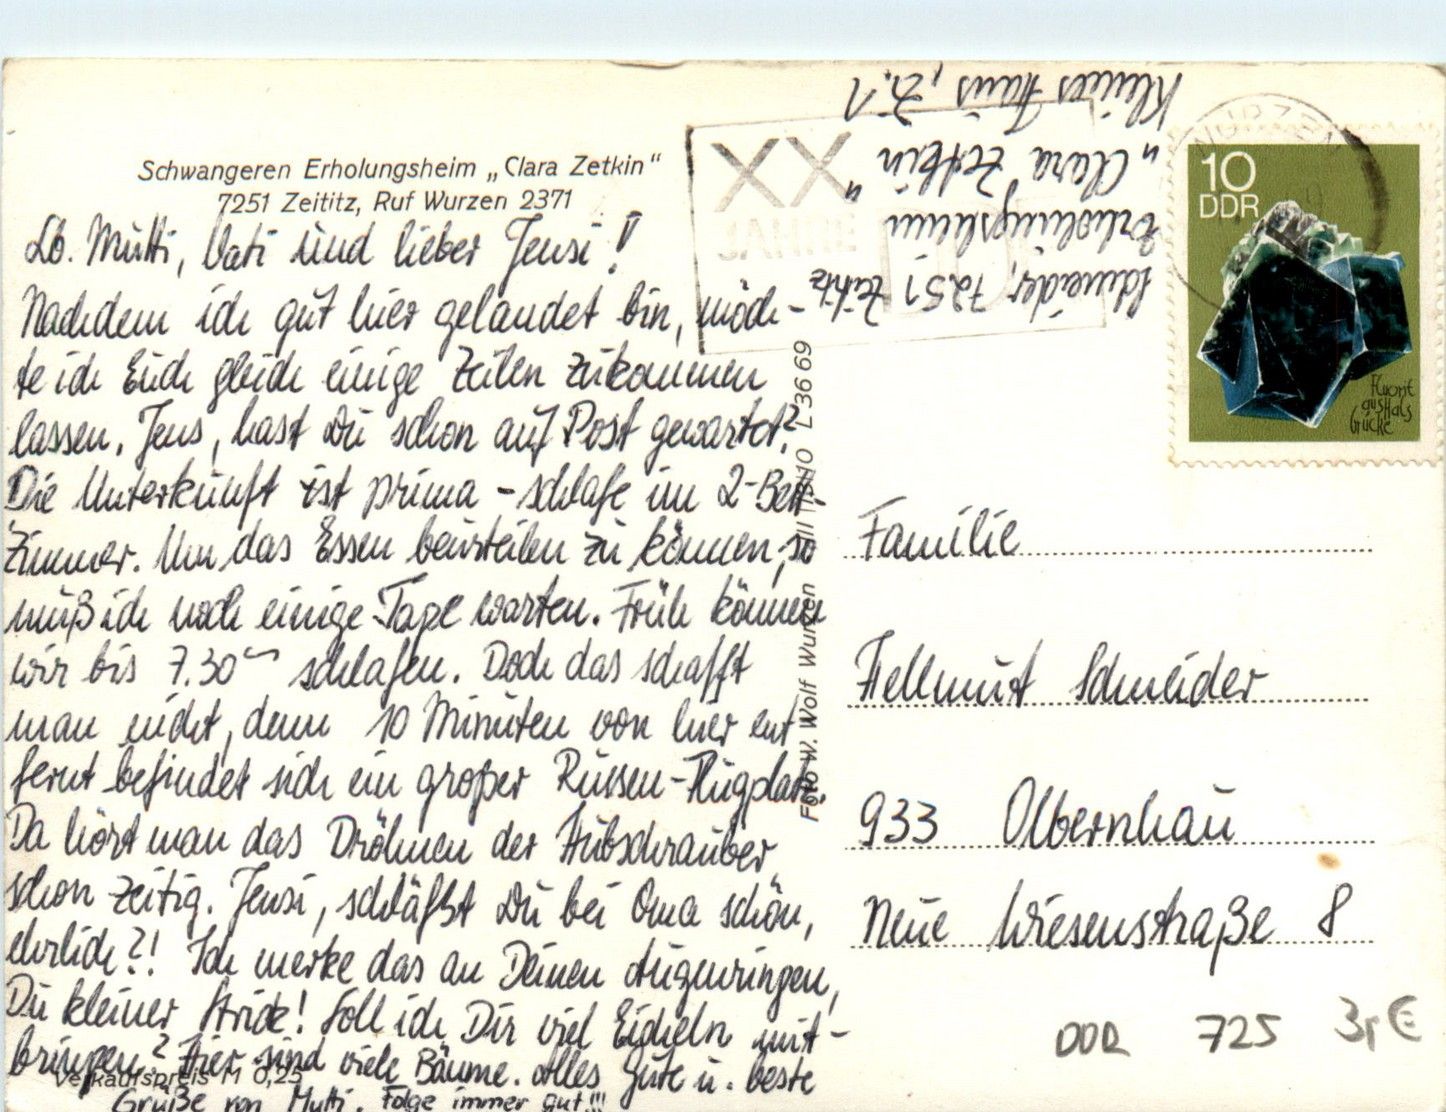 Schwangeren Erholungsheim „Clara Zetkin"
7251 Zeititz, Ruf Wurzen 2371
Lb. Mutti, Vati und lieber Jensi!
Nachdem ich gut hier gelandet bin, möch-
te ich Euch gleich einige Zeilen zukommen
lassen. Jens, hast Du schon auf Post gewartet?
Die Unterkunft ist prima – schlafe im 2-Bett-
Zimmer. Um das Essen beurteilen zu können, so
muß ich noch einige Tage warten. Früh können
wir bis 7.30 schlafen. Doch das schafft
man nicht, denn 10 Minuten von hier ent
fernt befindet sich ein großer Russen-Flugplatz.
Da hört man das Dröhnen der Hubschrauber
schon zeitig. Jensi, schläfst Du bei Oma schön,
ehrlich?! Ich merke das an Deinen Augenringen,
Du kleiner Strick! Soll ich Dir viel Eicheln mit-
bringen? Hier sind viele Bäume. Alles Gute u. beste
Grüße von Mutti. Folge immer gut!!!
Verkaufspreis M 0,25
Foto W. Wolf Wurzen III L 36 69
Schneider, 7251 Zeititz
Erholungsheim
„Clara Zetkin"
Kleines Haus, Zi. 1
XX
JAHRE
WURZEN
10
DDR
Fluorit
aus Hals
brücke
Familie
Hellmut Schneider
933 Olbernhau
Neue Wiesenstraße 8
DDR 725 3,- €